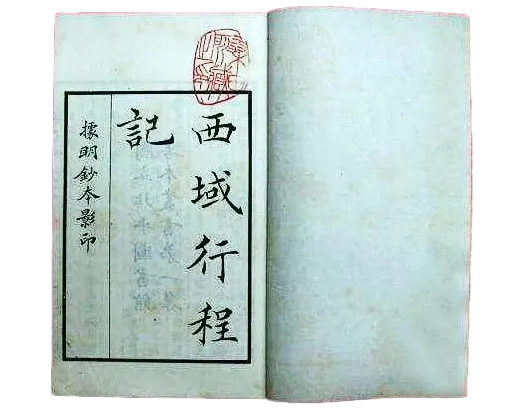 西域行程
記
據明鈔本影印